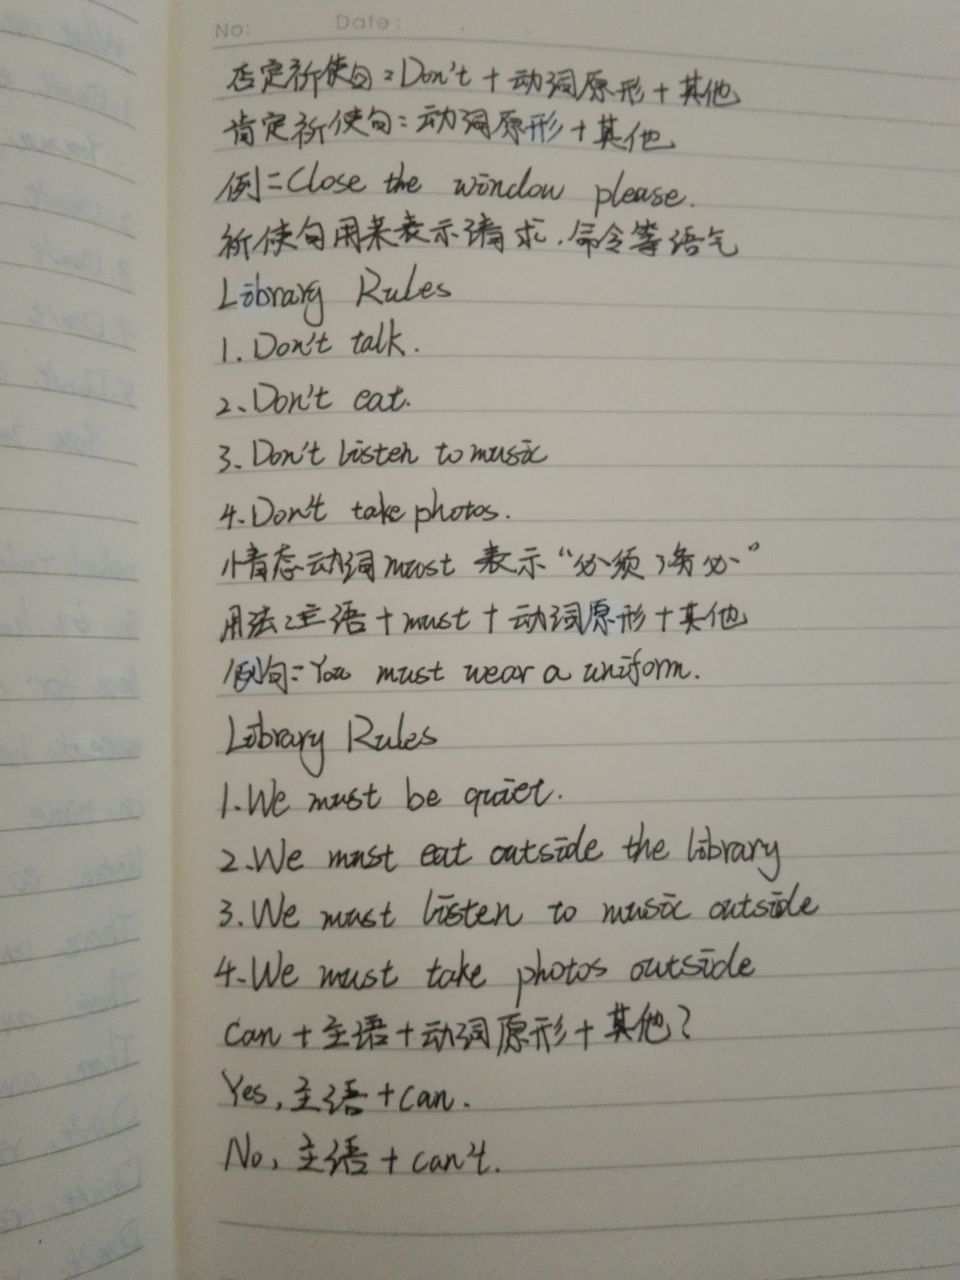 No: Date:
否定祈使句:Don't + 动词原形 + 其他
肯定祈使句:动词原形 + 其他
例:Close the window please.
祈使句用来表示请求,命令等语气
Library Rules
1. Don't talk.
2. Don't eat.
3. Don't listen to music
4. Don't take photos.
情态动词must 表示“必须 务必”
用法:主语 + must + 动词原形 + 其他
例句:You must wear a uniform.
Library Rules
1. We must be quiet.
2. We must eat outside the library
3. We must listen to music outside
4. We must take photos outside
Can + 主语 + 动词原形 + 其他?
Yes, 主语 + can.
No, 主语 + can't.